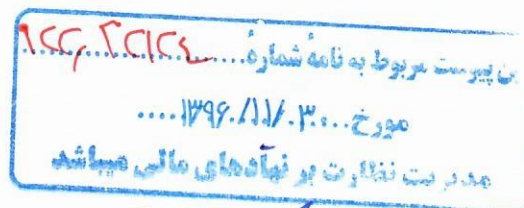 ین پیوست مربوط به نامهٔ شمارهٔ....................
مورخ....۱۳۹۶/۱۱/۰۳....
مدیریت نظارت بر نهادهای مالی میباشد